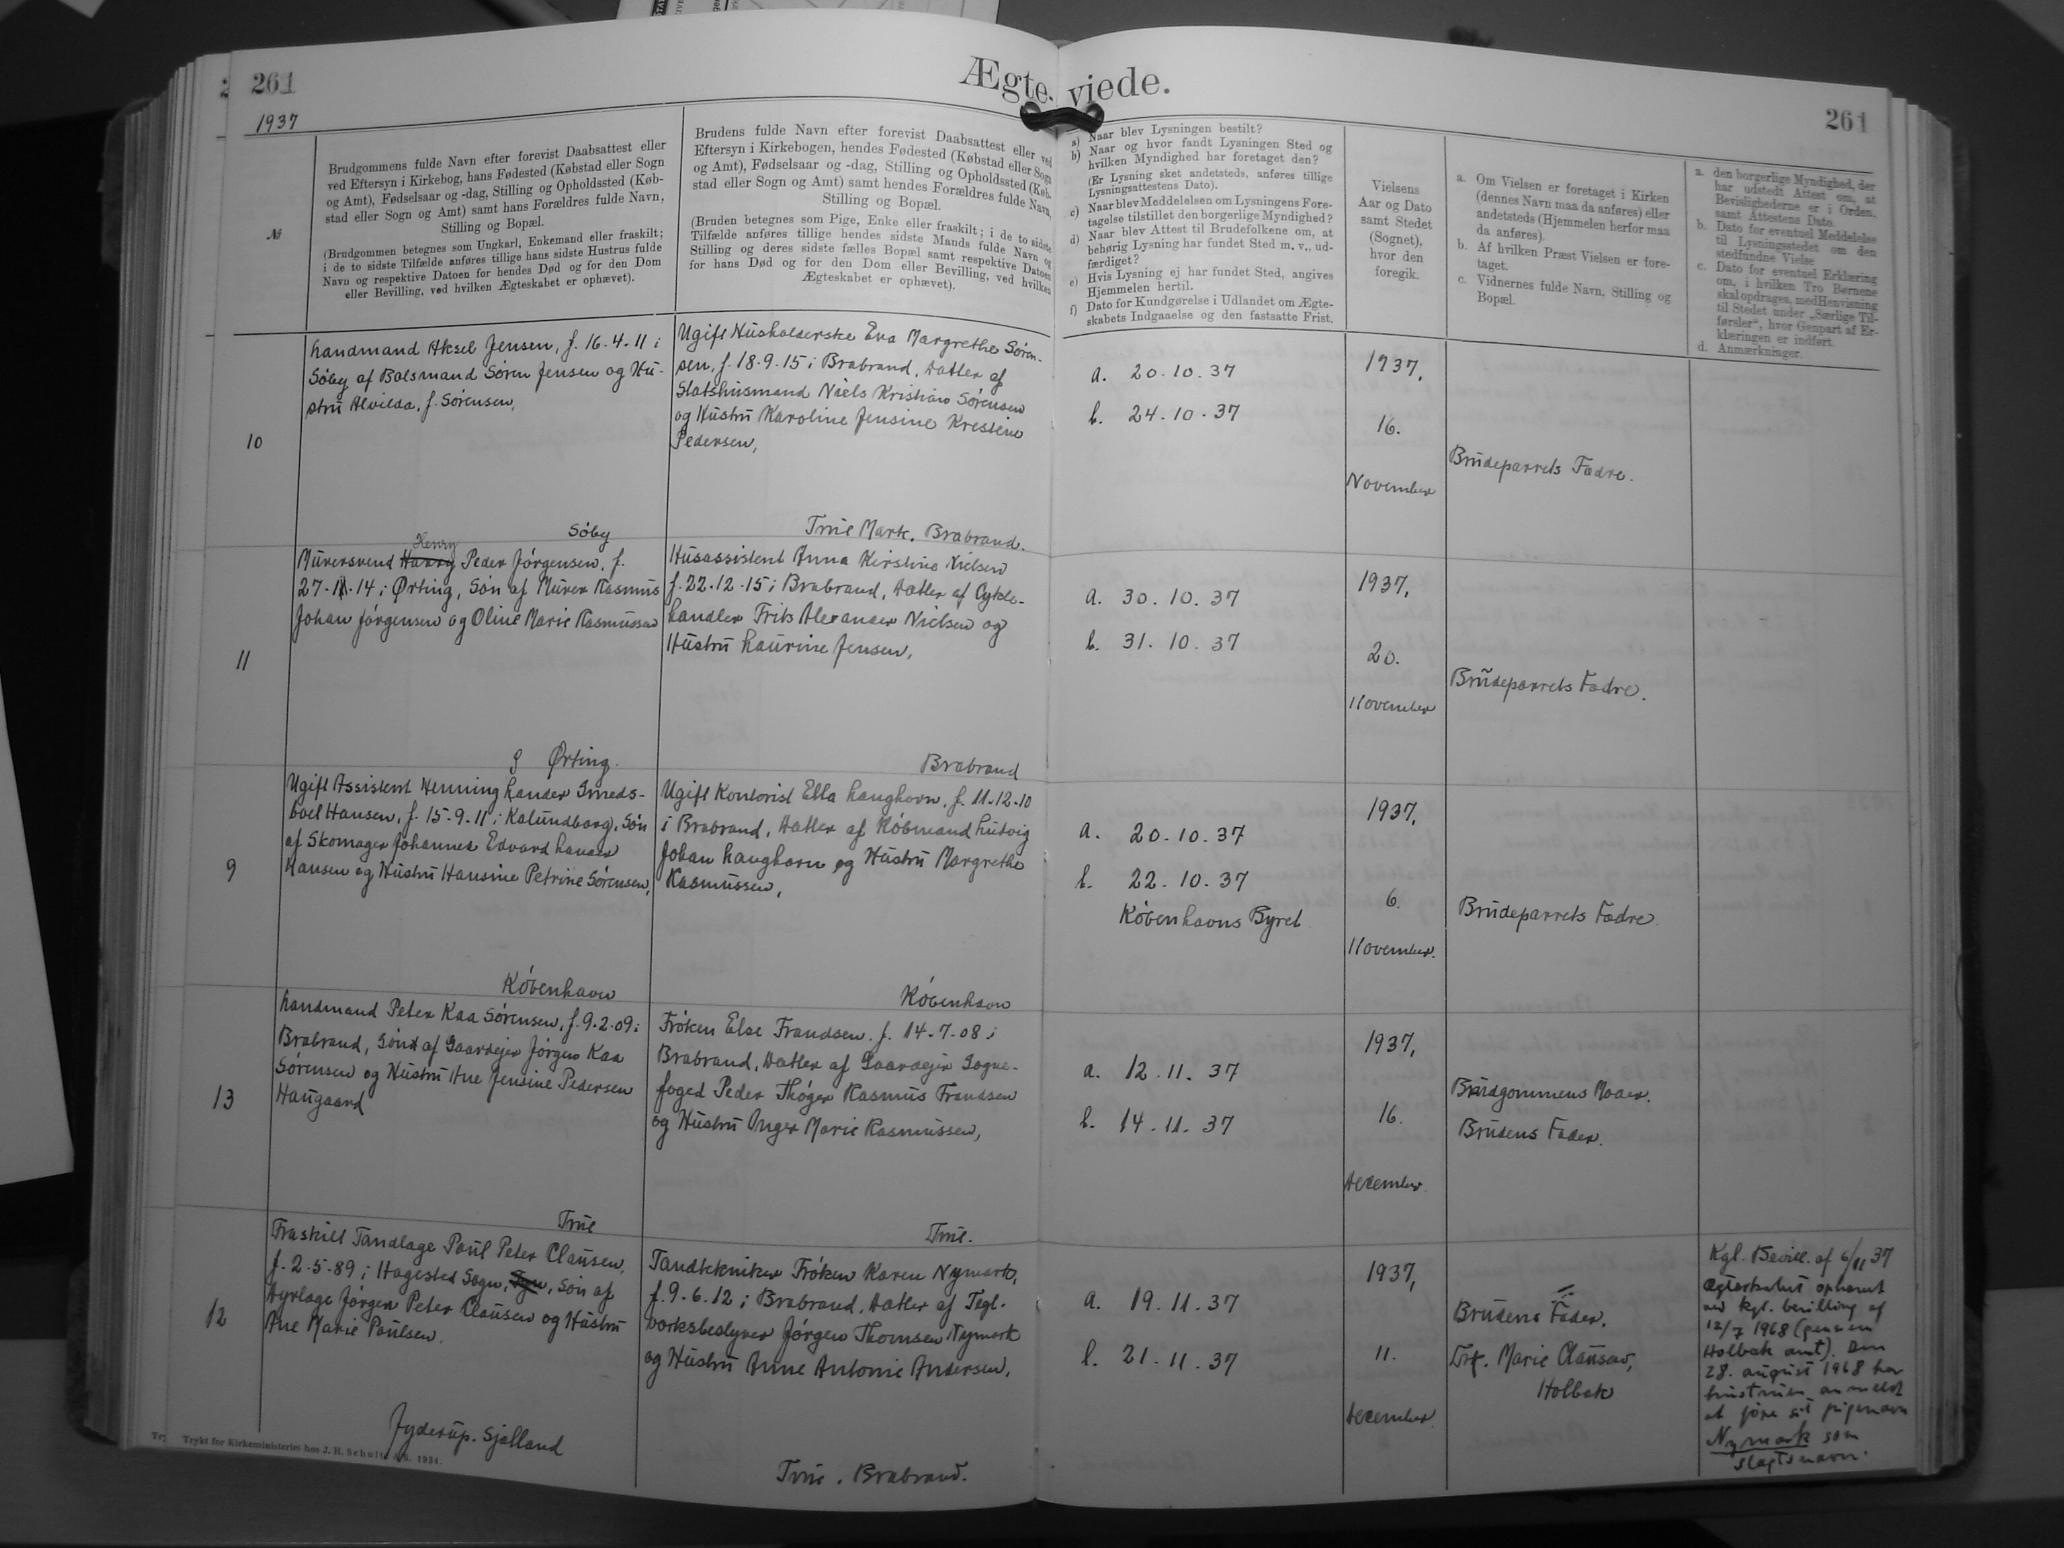 Ægte- viede.
261
261
1937
№
Brudgommens fulde Navn efter forevist Daabsattest eller
ved Eftersyn i Kirkebog, hans Fødested (Købstad eller Sogn
og Amt), Fødselsaar og -dag, Stilling og Opholdssted (Køb-
stad eller Sogn og Amt) samt hans Forældres fulde Navn,
Stilling og Bopæl.
(Brudgommen betegnes som Ungkarl, Enkemand eller fraskilt;
i de to sidste Tilfælde anføres tillige hans sidste Hustrus fulde
Navn og respektive Datoen for hendes Død og for den Dom
eller Bevilling, ved hvilken Ægteskabet er ophævet).
Brudens fulde Navn efter forevist Daabsattest eller ved
Eftersyn i Kirkebogen, hendes Fødested (Købstad eller Sogn
og Amt), Fødselsaar og -dag, Stilling og Opholdssted (Køb-
stad eller Sogn og Amt) samt hendes Forældres fulde Navn,
Stilling og Bopæl.
(Bruden betegnes som Pige, Enke eller fraskilt; i de to sidste
Tilfælde anføres tillige hendes sidste Mands fulde Navn og
Stilling og deres sidste fælles Bopæl samt respektive Datoen
for hans Død og for den Dom eller Bevilling, ved hvilken
Ægteskabet er ophævet).
a) Naar blev Lysningen bestilt?
b) Naar og hvor fandt Lysningen Sted og
hvilken Myndighed har foretaget den?
(Er Lysning sket andetsteds, anføres tillige
Lysningsattestens Dato).
c) Naar blev Meddelelsen om Lysningens Fore-
tagelse tilstillet den borgerlige Myndighed?
d) Naar blev Attest til Brudefolkene om, at
behørig Lysning har fundet Sted m. v., ud-
færdiget?
e) Hvis Lysning ej har fundet Sted, angives
Hjemmelen hertil.
f) Dato for Kundgørelse i Udlandet om Ægte-
skabets Indgaaelse og den fastsatte Frist.
Vielsens
Aar og Dato
samt Stedet
(Sognet),
hvor den
foregik.
a. Om Vielsen er foretaget i Kirken
(dennes Navn maa da anføres) eller
andetsteds (Hjemmelen herfor maa
da anføres).
b. Af hvilken Præst Vielsen er fore-
taget.
c. Vidnernes fulde Navn, Stilling og
Bopæl.
a. den borgerlige Myndighed, der
har udstedt Attest om, at
Bevislighederne er i Orden,
samt Attestens Dato.
b. Dato for eventuel Meddelelse
til Lysningsstedet om den
stedfundne Vielse
c. Dato for eventuel Erklæring
om, i hvilken Tro Børnene
skal opdrages, med Henvisning
til Stedet under „Særlige Til-
førsler“, hvor Genpart af Er-
klæringen er indført.
d. Anmærkninger.
10
Landmand Aksel Jensen, f. 16-4-11 i
Søby af Bolsmand Søren Jensen og Hu-
stru Alvilda, f. Sørensen,
Søby
Ugift Husholderske Eva Margrethe Søren-
sen, f. 18-9-15 i Brabrand, Datter af
Statshusmand Niels Kristian Sørensen
og Hustru Karoline Jensine Krestine
Pedersen,
True Mark. Brabrand.
a. 20.10.37
b. 24.10.37
1937,
16.
November
Brudeparrets Fædre.
11
Henry
Murersvend Harry Peder Jørgensen, f.
27-11-14 i Ørting, Søn af Murer Rasmus
Johan Jørgensen og Oline Marie Rasmussen
Ørting.
Husassistent Anna Kirstine Nielsen
f. 22-12-15 i Brabrand, Datter af Cykle-
handler Frits Alexander Nielsen og
Hustru Laurine Jensen,
Brabrand
a. 30.10.37
b. 31.10.37
1937,
20.
November
Brudeparrets Fædre.
9
Ugift Assistent Henning Lander Smeds-
boel Hansen, f. 15-9-11 i Kalundborg, Søn
af Skomager Johannes Edvard Lander
Hansen og Hustru Hansine Petrine Sørensen,
København
Ugift Kontorist Ella Langhorn, f. 11-12-10
i Brabrand, Datter af Købmand Ludvig
Johan Langhorn og Hustru Margrethe
Rasmussen,
København
a. 20.10.37
b. 22.10.37
Københavns Byret
1937,
6.
November.
Brudeparrets Fædre
13
Landmand Peter Kaa Sørensen, f. 9-2-09 i
Brabrand, Søn af Gaardejer Jørgen Kaa
Sørensen og Hustru Ane Jensine Pedersen
Haugaard
True
Frøken Else Frandsen, f. 14-7-08 i
Brabrand, Datter af Gaardejer Sogne-
foged Peder Thøger Rasmus Frandsen
og Hustru Inger Marie Rasmussen,
True.
a. 12.11.37
b. 14.11.37
1937,
16.
December
Brudgommens Moder.
Brudens Fader.
12
Fraskilt Tandlæge Poul Peter Clausen,
f. 2-5-89 i Hagested Sogn, Søn af
Dyrlæge Jørgen Peter Clausen og Hustru
Ane Marie Poulsen.
Jyderup. Sjælland
Tandtekniker Frøken Karen Nymark,
f. 9-6-12 i Brabrand, Datter af Tegl-
værksbestyrer Jørgen Thomsen Nymark
og Hustru Anne Antonie Andersen,
True. Brabrand.
a. 19.11.37
b. 21.11.37
1937,
11.
December
Brudens Fader.
Frk. Marie Clausen,
Holbæk
Kgl. Bevill. af 6/11 37
Ægteskabet ophævet
ved kgl. bevilling af
12/7 1968 (gennem
Holbæk amt). Den
28. august 1968 har
hustruen anmeldt
at føre sit pigenavn
Nymark som
slægtsnavn.
Trykt for Kirkeministeriet hos J. H. Schultz A/S. 1934.